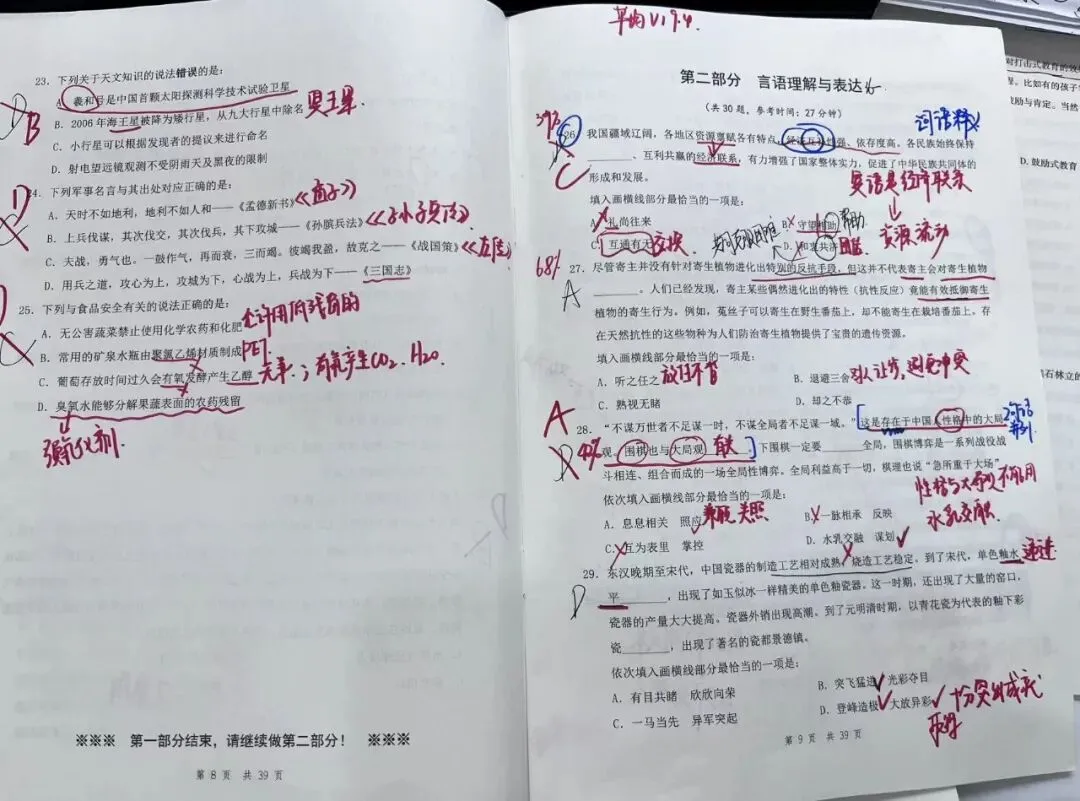 23. 下列关于天文知识的说法错误的是:
A. 羲和号是中国首颗太阳探测科学技术试验卫星
B. 2006年海王星被降为矮行星，从九大行星中除名 冥王星.
B
C. 小行星可以根据发现者的提议来进行命名
D. 射电望远镜观测不受阴雨天及黑夜的限制
24. 下列军事名言与其出处对应正确的是:
A. 天时不如地利，地利不如人和——《孟德新书》《孟子》
B. 上兵伐谋，其次伐交，其次伐兵，其下攻城——《孙膑兵法》《孙子兵法》
C. 夫战，勇气也。一鼓作气，再而衰，三而竭。彼竭我盈，故克之——《战国策》《左传》
D. 用兵之道，攻心为上，攻城为下，心战为上，兵战为下——《三国志》
25. 下列与食品安全有关的说法正确的是:
A. 无公害蔬菜禁止使用化学农药和化肥 允许用低残留的
B. 常用的矿泉水瓶由聚氯乙烯材质制成 PET.
C. 葡萄存放时间过久会有氧发酵产生乙醇 无氧; 有氧产生CO2、H2O.
D. 臭氧水能够分解果蔬表面的农药残留
强氧化剂.
※※※ 第一部分结束，请继续做第二部分！ ※※※
第 8 页 共 39 页
平均V17.4.
第二部分 言语理解与表达
(共 30 题，参考时间：27 分钟)
词语释义
26. 我国疆域辽阔，各地区资源禀赋各有特点，经济互补性强、依存度高。各民族始终保持
________、互利共赢的经济联系，有力增强了国家整体实力，促进了中华民族共同体的
形成和发展。
C
填入画横线部分最恰当的一项是:
A. 礼尚往来 B. 守望相助 帮助
C. 互通有无 交换 D. 和衷共济 团结
68%
27. 尽管寄主并没有针对寄生植物进化出特别的反抗手段，但这并不代表寄主会对寄生植物
A
________。人们已经发现，寄主某些偶然进化出的特性（抗性反应）竟能有效抵御寄生
植物的寄生行为。例如，菟丝子可以寄生在野生番茄上，却不能寄生在栽培番茄上。存
在天然抗性的这些物种为人们防治寄生植物提供了宝贵的遗传资源。
填入画横线部分最恰当的一项是:
A. 听之任之 放任不管 B. 退避三舍
C. 熟视无睹 D. 却之不恭
A
28. “不谋万世者不足谋一时，不谋全局者不足谋一域。”这是存在于中国人性格中的大局
观。围棋也与大局观 有关 下围棋一定要________全局，围棋博弈是一系列战役战
斗相连、组合而成的一场全局性博弈。全局利益高于一切，棋理也说“急所重于大场”
依次填入画横线部分最恰当的一项是: 性格与大局观不能用
A. 息息相关 照应 B. 一脉相承 反映 水乳交融
C. 互为表里 掌控 D. 水乳交融 谋划
29. 东汉晚期至宋代，中国瓷器的制造工艺相对成熟，烧造工艺稳定。到了宋代，单色釉水 递进
D
平________，出现了如玉似冰一样精美的单色釉瓷器。这一时期，还出现了大量的窑口，
瓷器的产量大大提高。瓷器外销出现高潮。到了元明清时期，以青花瓷为代表的釉下彩
瓷________，出现了著名的瓷都景德镇。
依次填入画横线部分最恰当的一项是:
A. 有目共睹 欣欣向荣 B. 突飞猛进 光彩夺目
C. 一马当先 异军突起 D. 登峰造极 大放异彩
第 9 页 共 39 页
对打击式教育的效
D. 鼓励式教育